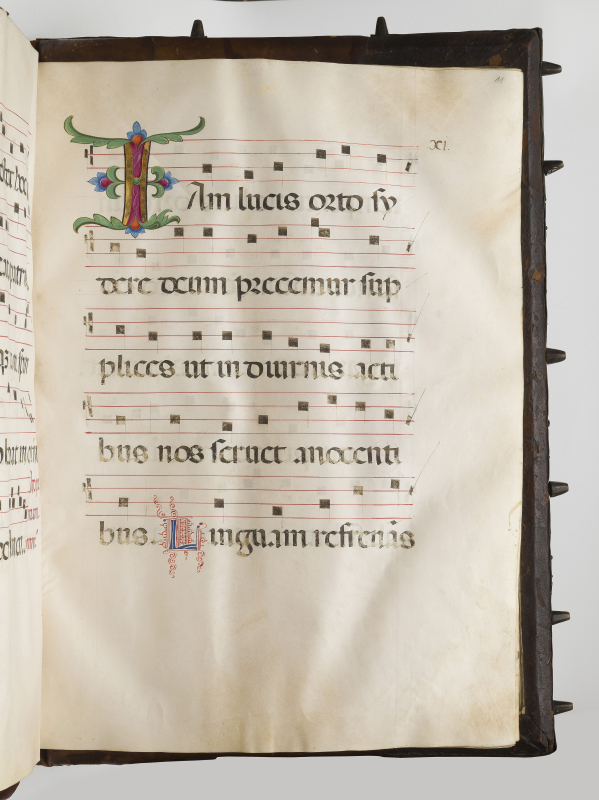 11
XI.
IAm lucis orto sy
dere deum precemur sup
plices ut in diurnis acti
bus nos seruet anocenti
bus. Linguam refrenãs